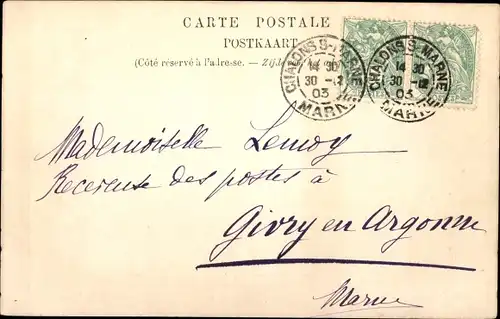 CARTE POSTALE
POSTKAART
(Côté réservé à l'adresse. — Zijde
CHALONS-S-MARNE
14 30
30 -12
03
MARNE
CHALONS-S-MARNE
14 30
30 -12
03
MARNE
Mademoiselle Lemoy
Receveuse des postes à
Givry en Argonne
Marne